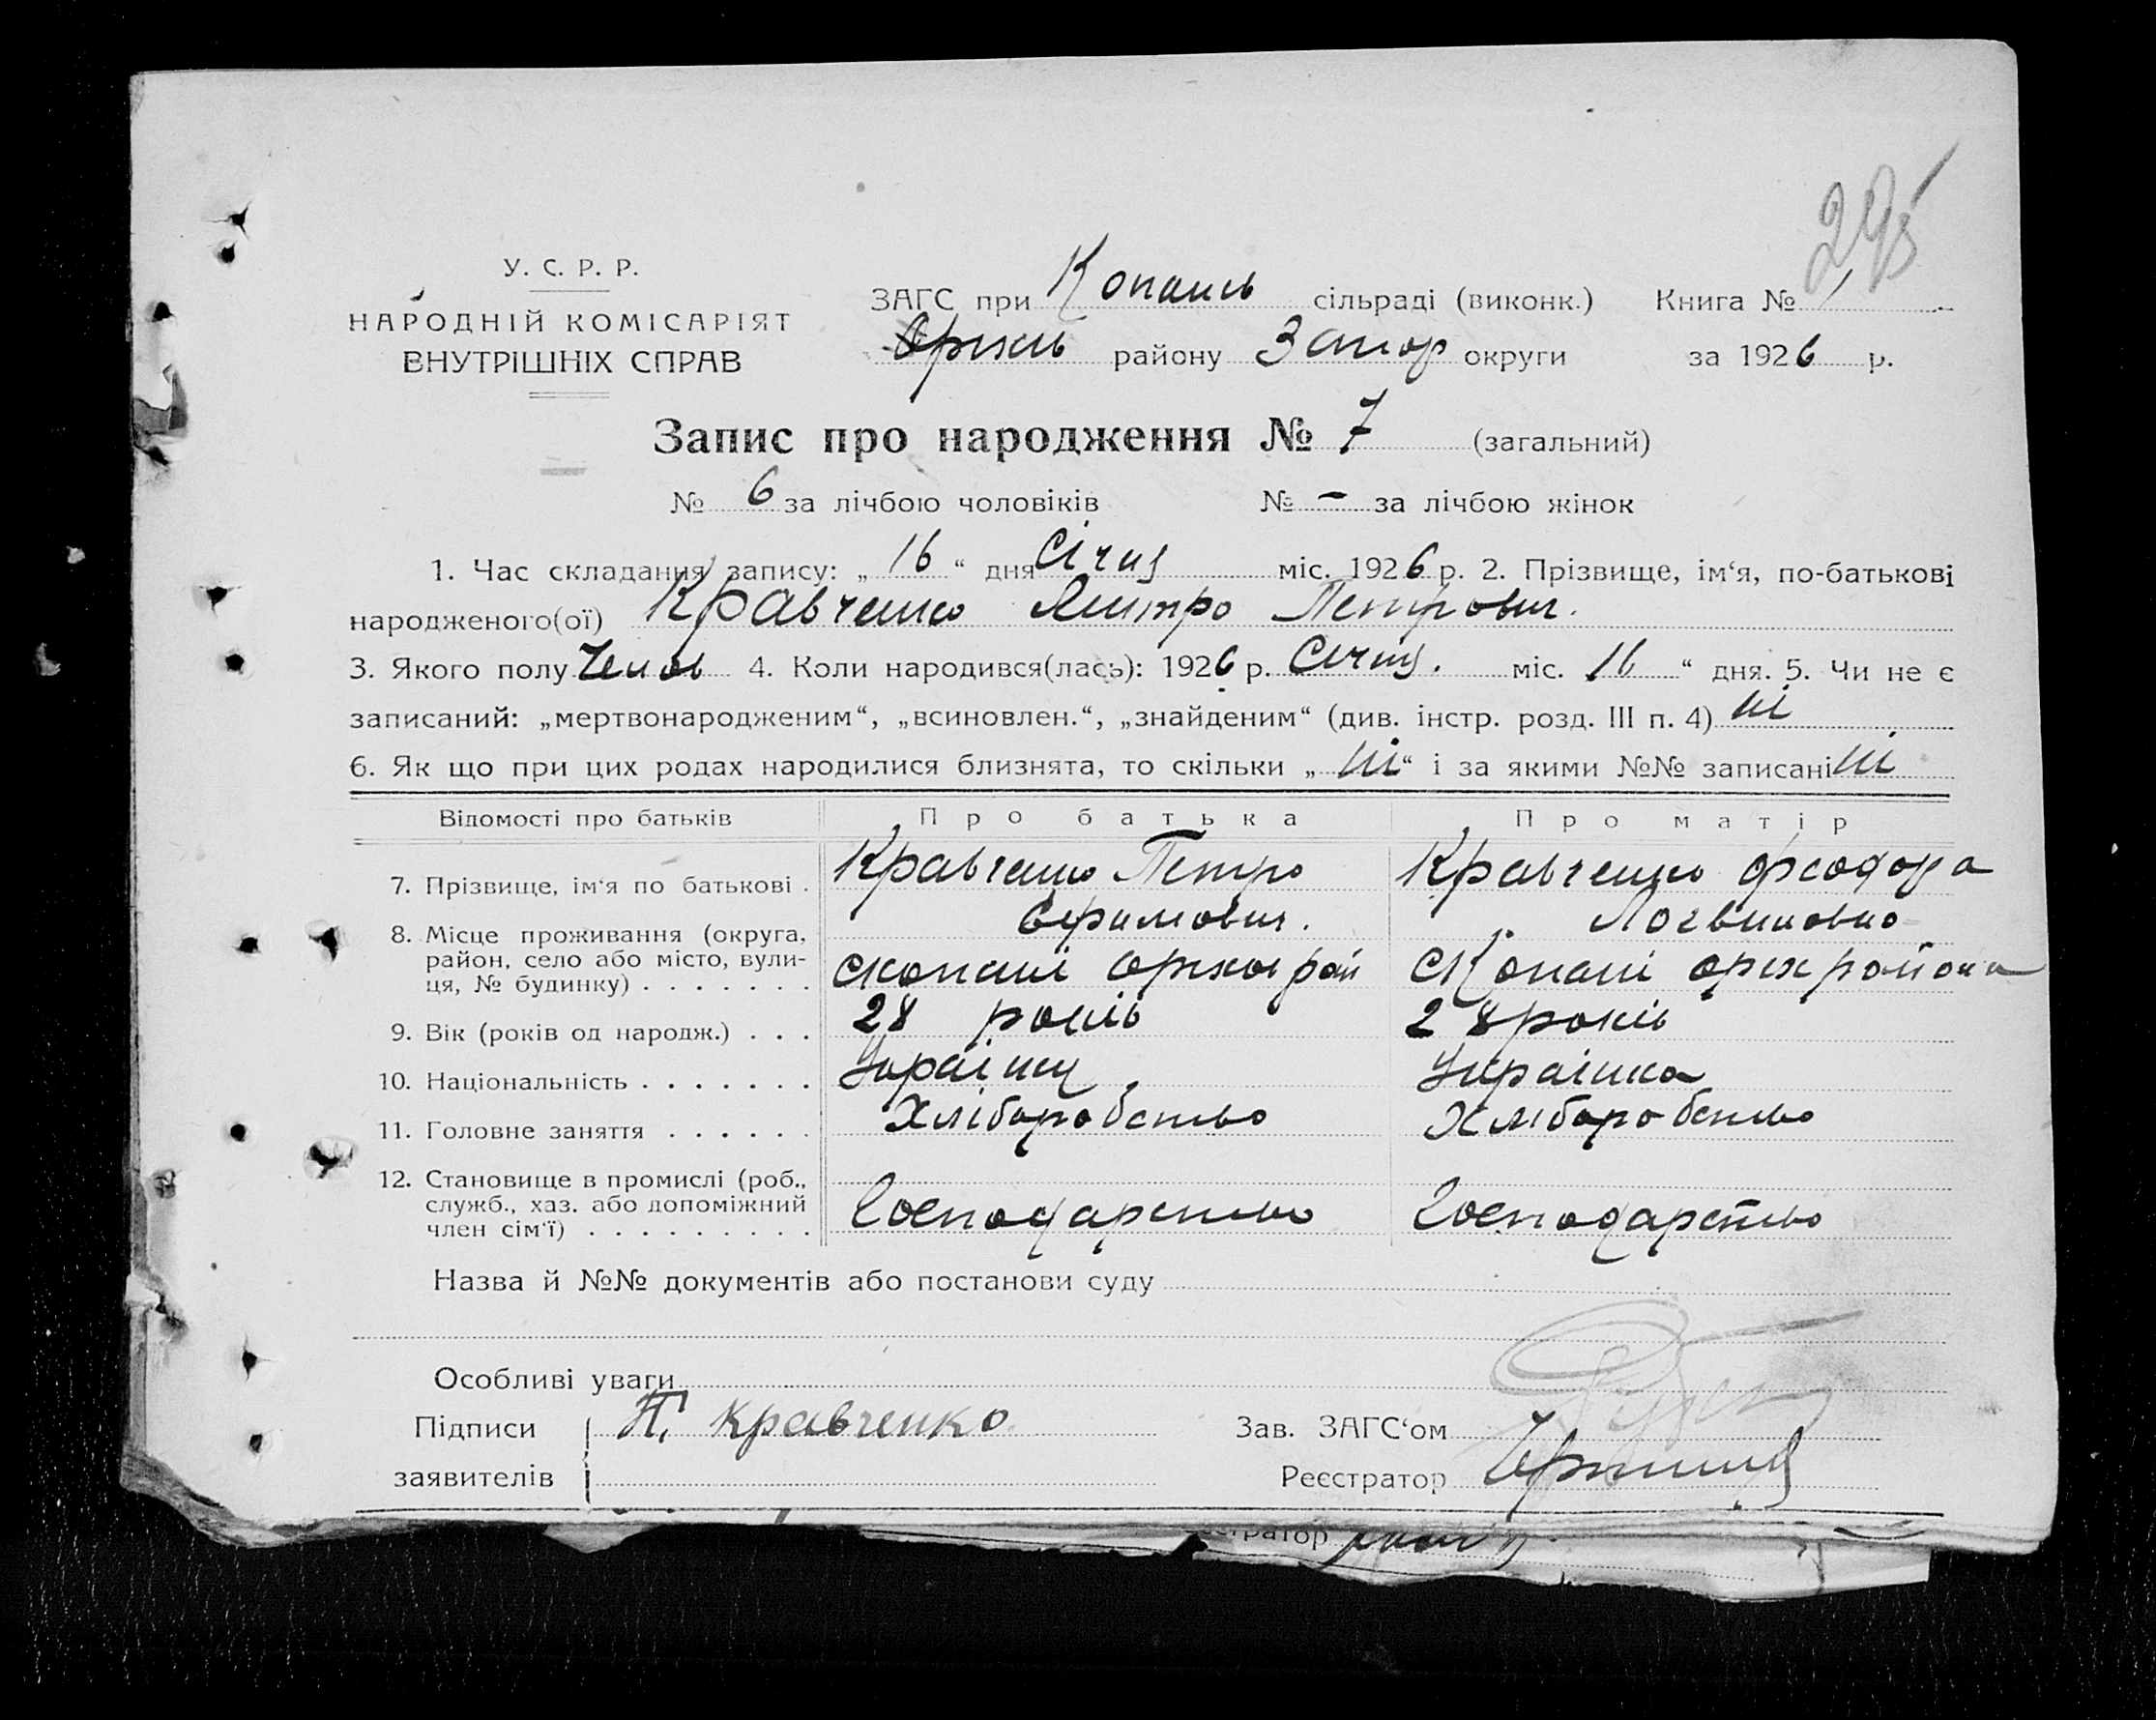 295
У. С. Р. Р.
НАРОДНІЙ КОМІСАРІЯТ
ВНУТРІШНІХ СПРАВ
ЗАГС при Копань сільраді (виконк.) Книга № 1
Оріхів району Запор округи за 1926 р.
Запис про народження № 7 (загальний)
№ 6 за лічбою чоловіків № - за лічбою жінок
1. Час складання запису: „ 16 “ дня Січня міс. 1926 р. 2. Прізвище, ім‘я, по-батькові
народженого(ої) Кравченко Дмитро Петрович.
3. Якого полу Челов 4. Коли народився(лась): 1926 р. Січня. міс. 16 “ дня. 5. Чи не є
записаний: „мертвонародженим“, „всиновлен.“, „знайденим“ (див. інстр. розд. III п. 4) ні
6. Як що при цих родах народилися близнята, то скільки „ ні “ і за якими №№ записані ні
Відомості про батьків Про батька Про матір
7. Прізвище, ім‘я по батькові . Кравченко Петро Кравченко Феодора
Єфимович. Логвиновна
8. Місце проживання (округа,
район, село або місто, вули-
ця, № будинку) . . . . . . . с Копані Оріхов рай с Копані Оріх района
9. Вік (років од народж.) . . . 28 років 28 років
10. Національність . . . . . . . Українц Українка
11. Головне заняття . . . . . . Хліборобство Хліборобство
12. Становище в промислі (роб.,
служб., хаз. або допоміжний
член сім‘ї) . . . . . . . . . Господарство Господарство
Назва й №№ документів або постанови суду
Особливі уваги
Підписи П. Кравченко Зав. ЗАГС‘ом
заявителів Реєстратор